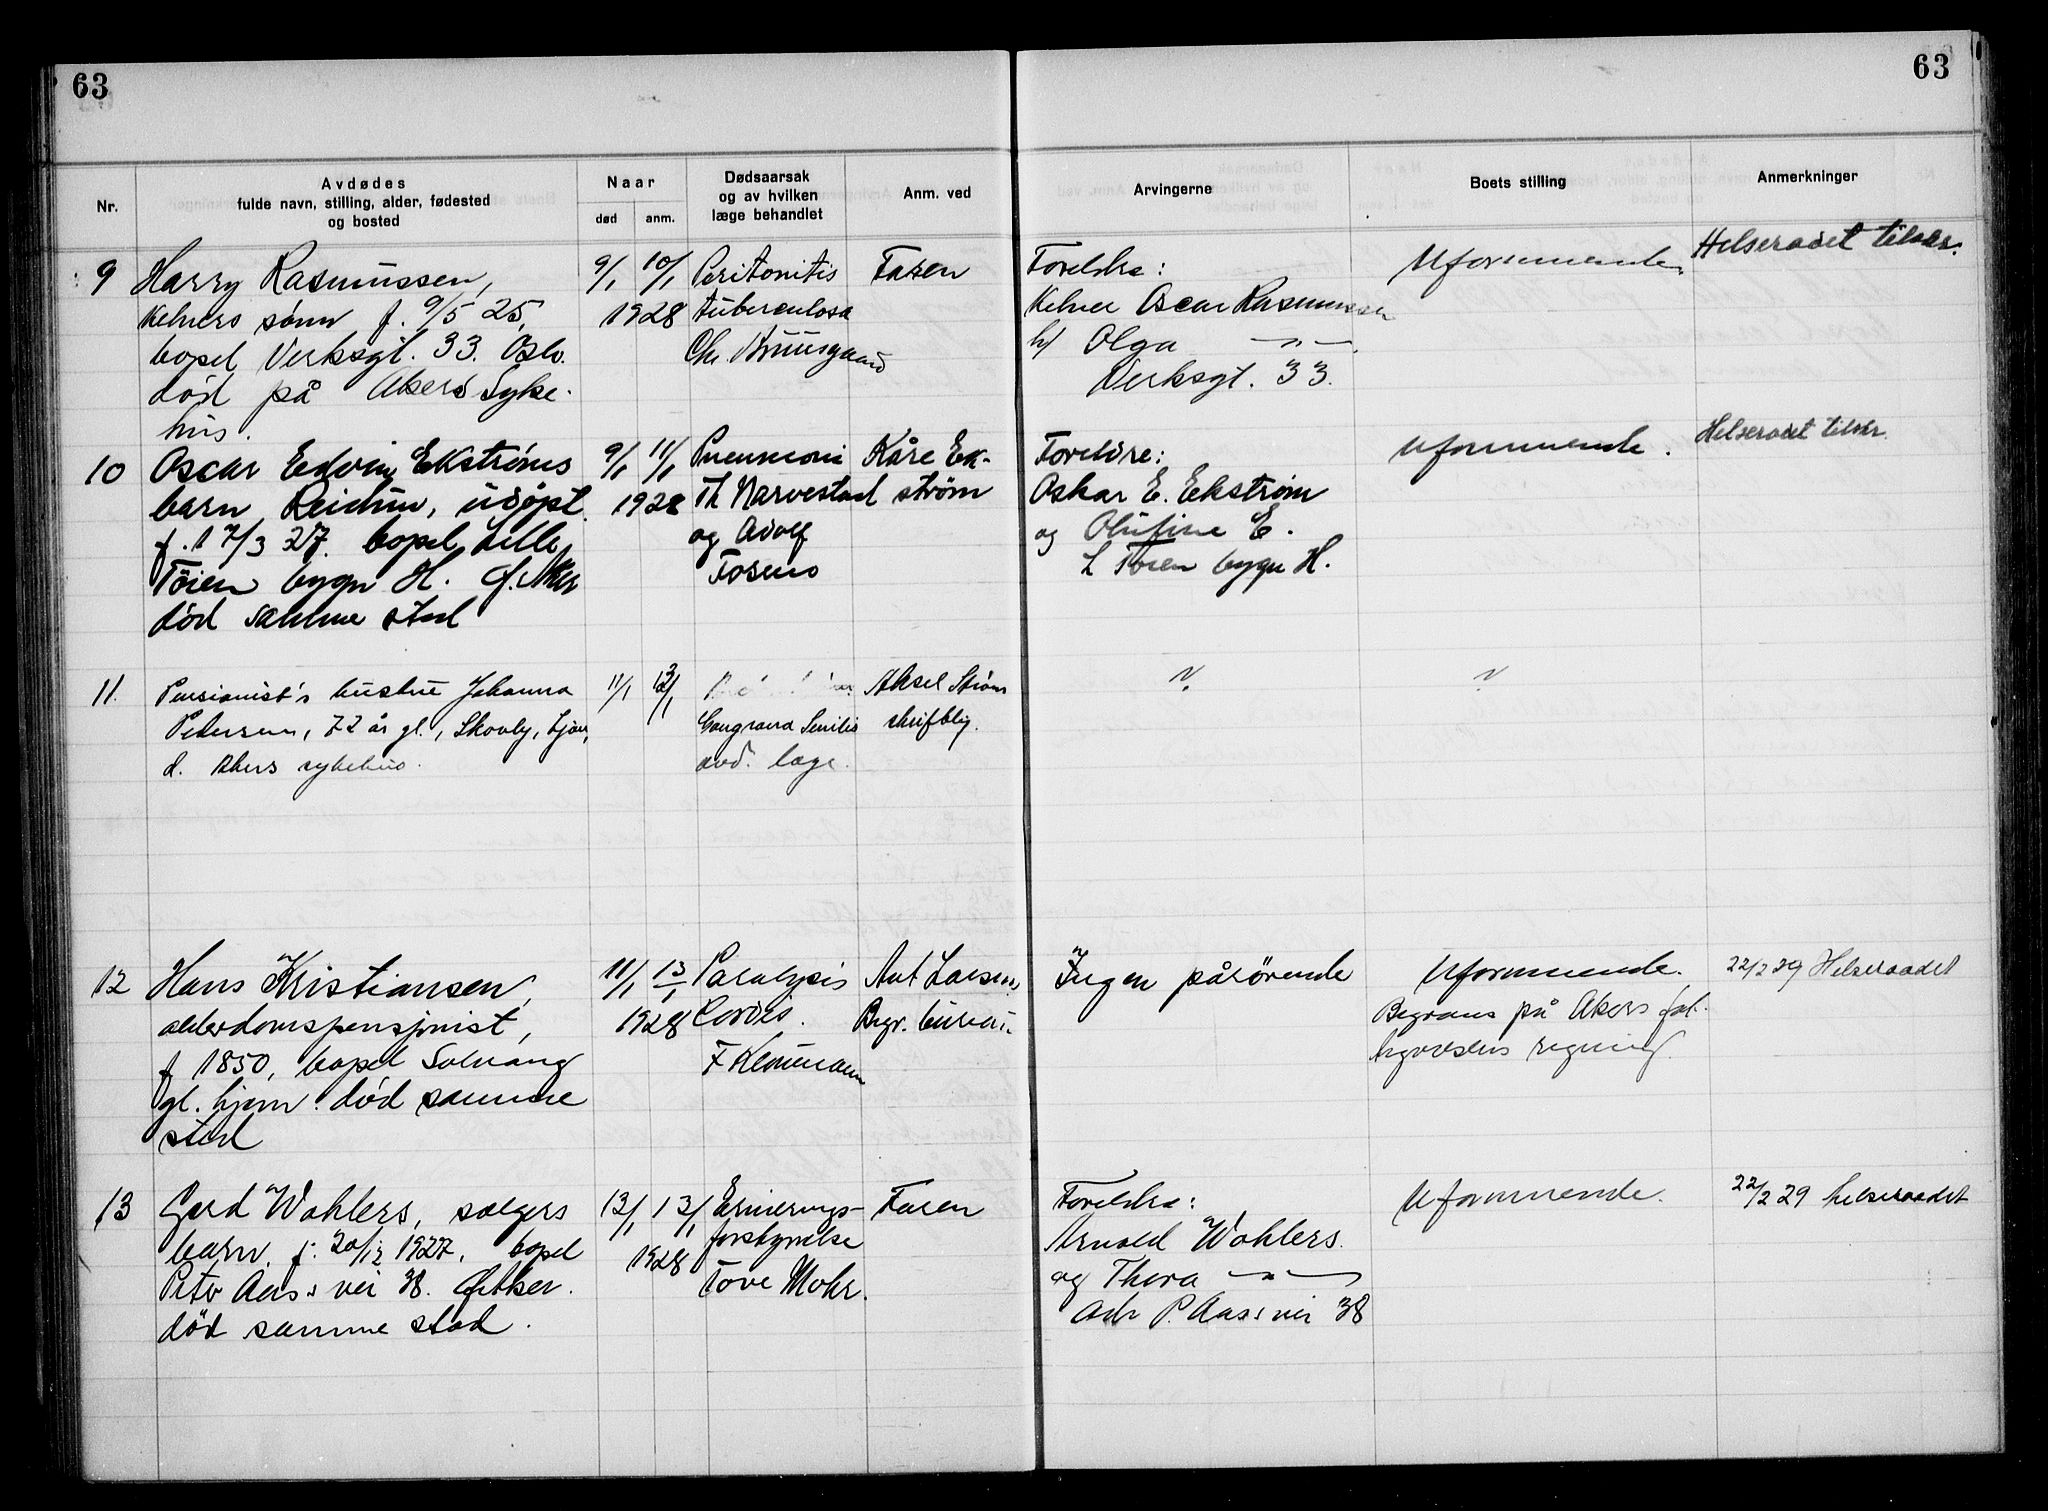 63
63
Nr.
Avdødes
fulde navn, stilling, alder, fødested
og bosted
Naar
død
anm.
Dødsaarsak
og av hvilken
læge behandlet
Anm. ved
Arvingerne
Boets stilling
Anmerkninger
9
Harry Rasmussen,
kelners sønn f. 9/5 25,
bopel Verksgt. 33. Oslo.
død på Akers Syke-
hus.
9/1 10/1
1928
Peritonitis
tuberculosa
Chr. Bruusgaard
Faren
Foreldre:
Kelner Oscar Rasmussen
h/ Olga —"—
Verksgt. 33.
Uformuende
Helseraadet tilskr.
10
Oscar Edvin Ekstrøms
barn Reidun, udøpt.
f. 17/3 27. bopel Lille
Tøien bygn H. Ø. Aker
død samme sted
9/1 11/1
1928
Pneumoni
Th Narvestad
og Adolf
Fosens
Kåre Ek-
strøm
Foreldre:
Oskar E. Ekstrøm
og Olufine E.
L Tøien bygn H.
Uformuende.
Helseraadet tilskr.
11.
Pensionist's hustru Johanna
Petersen, 72 år gl., Skovly, Ljan,
d. Akers sykehus.
11/1 12/1
Gangræna Senilis
avd. læge.
Aksel Strøm
skriftlig.
?
?
12
Hans Kristiansen,
alderdomspensjonist,
f 1850, bopel Solvang
gl. hjem. død samme
sted
11/1 13/1
1928
Paralysis
Cordis.
F Klemmann
Ant Larsens
Begr. bureau
Ingen pårørende
Uformuende.
Begraves på Akers fat.
regning.
22/2 29 Helseraadet
13
Gerd Wahlers, sælgers
barn, f. 20/12 1927, bopel
Peter Aas's vei 38. Ø Aker.
død samme sted.
13/1 13/1
1928
Ernærings-
forstyrrelse
Tove Mohr.
Faren
Foreldre:
Arnold Wahlers.
og Thora —"—
adr P. Aass vei 38
Uformuende.
22/2 29 helseraadet